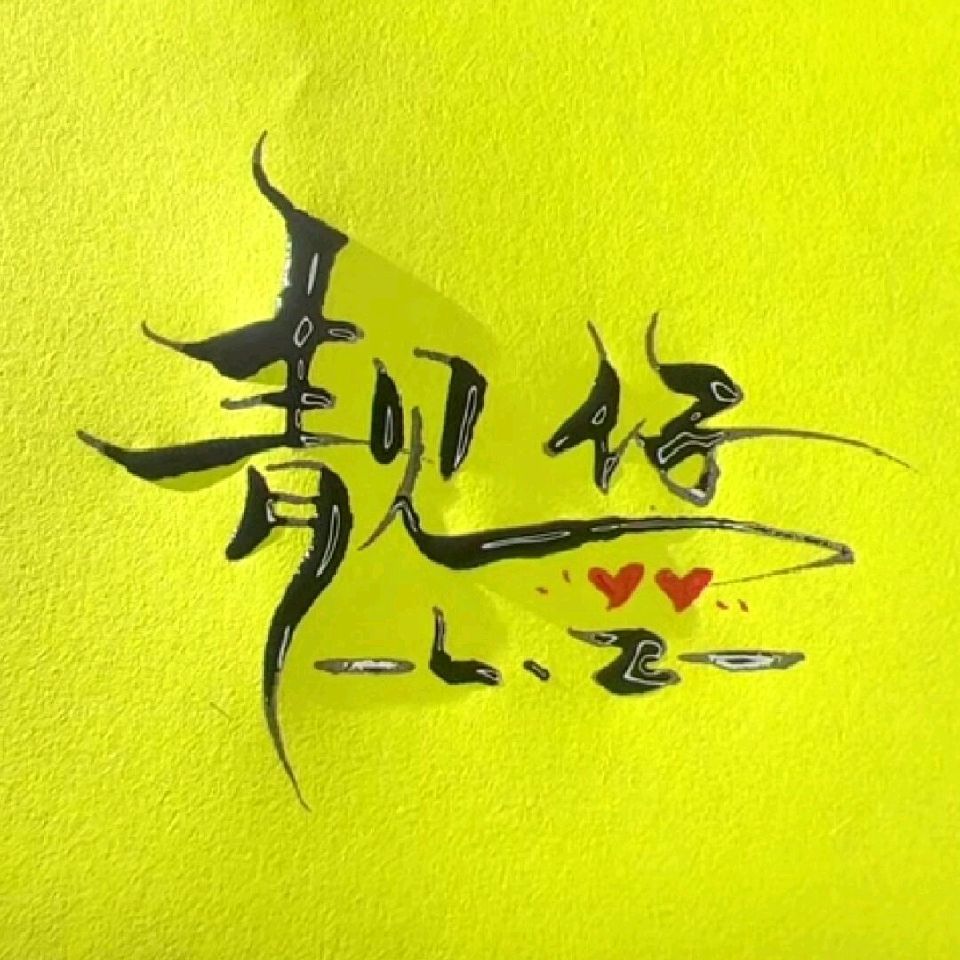 靓仔
—L.Z—